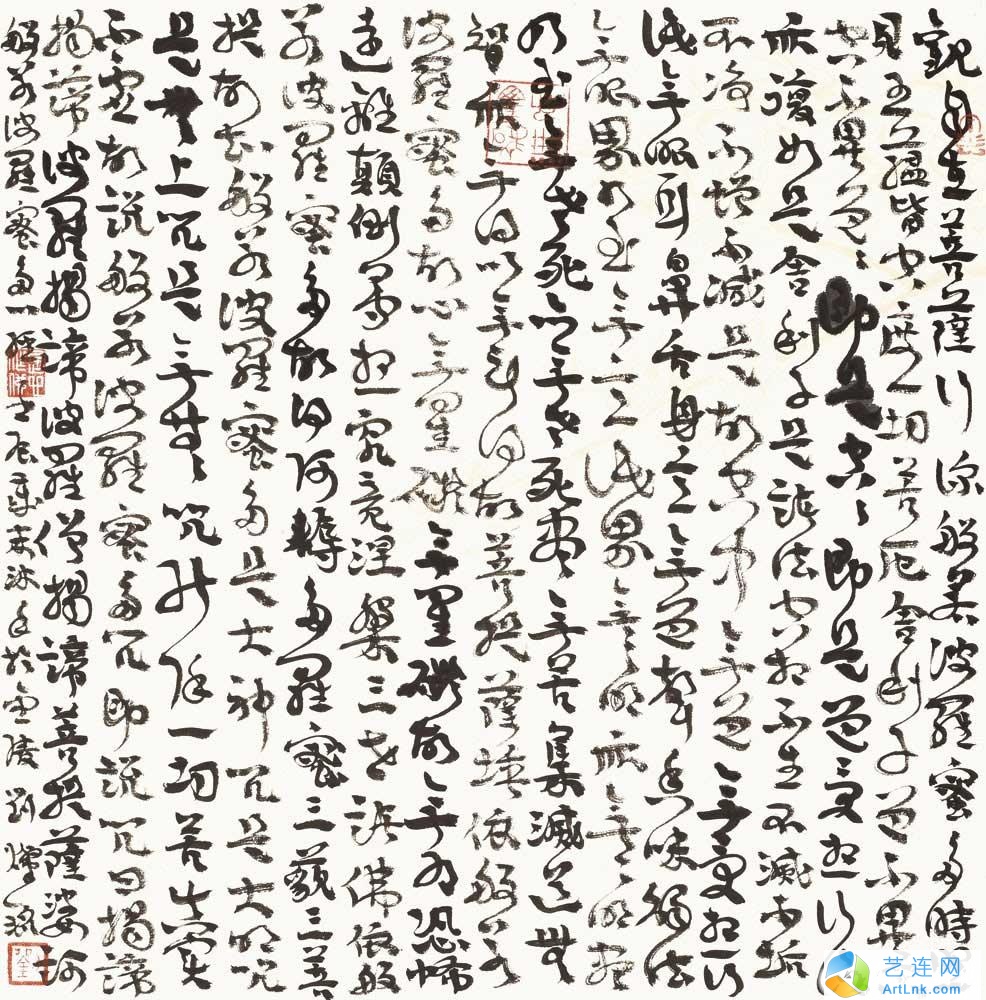 觀自在菩薩行深般若波羅蜜多時
見五蘊皆空度一切苦厄舍利子色不異
空不異色色即是空空即是色受想行
亦復如是舍利子是諸法空相不生不滅不垢
不淨不增不減是故空中無色無受想行
識無眼耳鼻舌身意無色聲香味觸法
無眼界乃至無意識界無無明亦無無明盡
乃至無老死亦無老死盡無苦集滅道無
智亦無得以無所得故菩提薩埵依般若
波羅蜜多故心無罣礙無罣礙故無有恐怖
遠離顛倒夢想究竟涅槃三世諸佛依般
若波羅蜜多故得阿耨多羅蜜三藐三菩
提故知般若波羅蜜多是大神咒是大明咒
是無上咒是無等等咒能除一切苦真實
不虛故說般若波羅蜜多咒即說咒曰揭諦
揭諦波羅揭諦波羅僧揭諦菩提薩婆訶
般若波羅蜜多心經 壬辰歲末沐手於金陵 劉燦銘
艺连网
ArtLnk.com